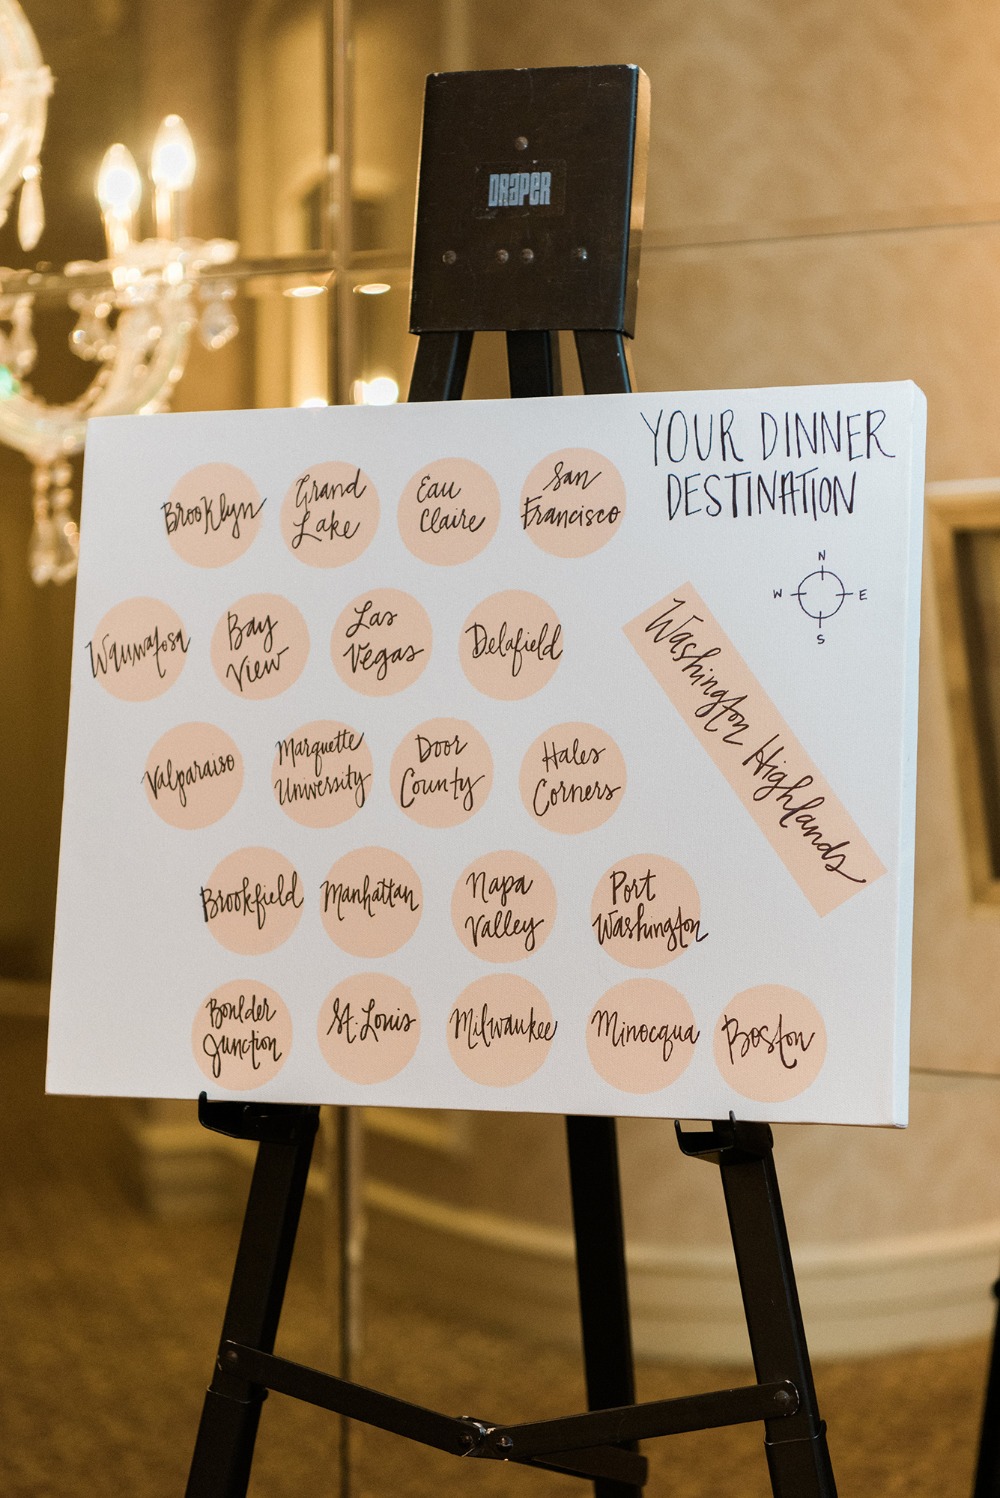 DRAPER
YOUR DINNER
DESTINATION
N
W E
S
Brooklyn
Grand
Lake
Eau
Claire
San
Francisco
Wauwatosa
Bay
View
Las
Vegas
Delafield
Washington Highlands
Valparaiso
Marquette
University
Door
County
Hales
Corners
Brookfield
Manhattan
Napa
Valley
Port
Washington
Boulder
Junction
St. Louis
Milwaukee
Minocqua
Boston